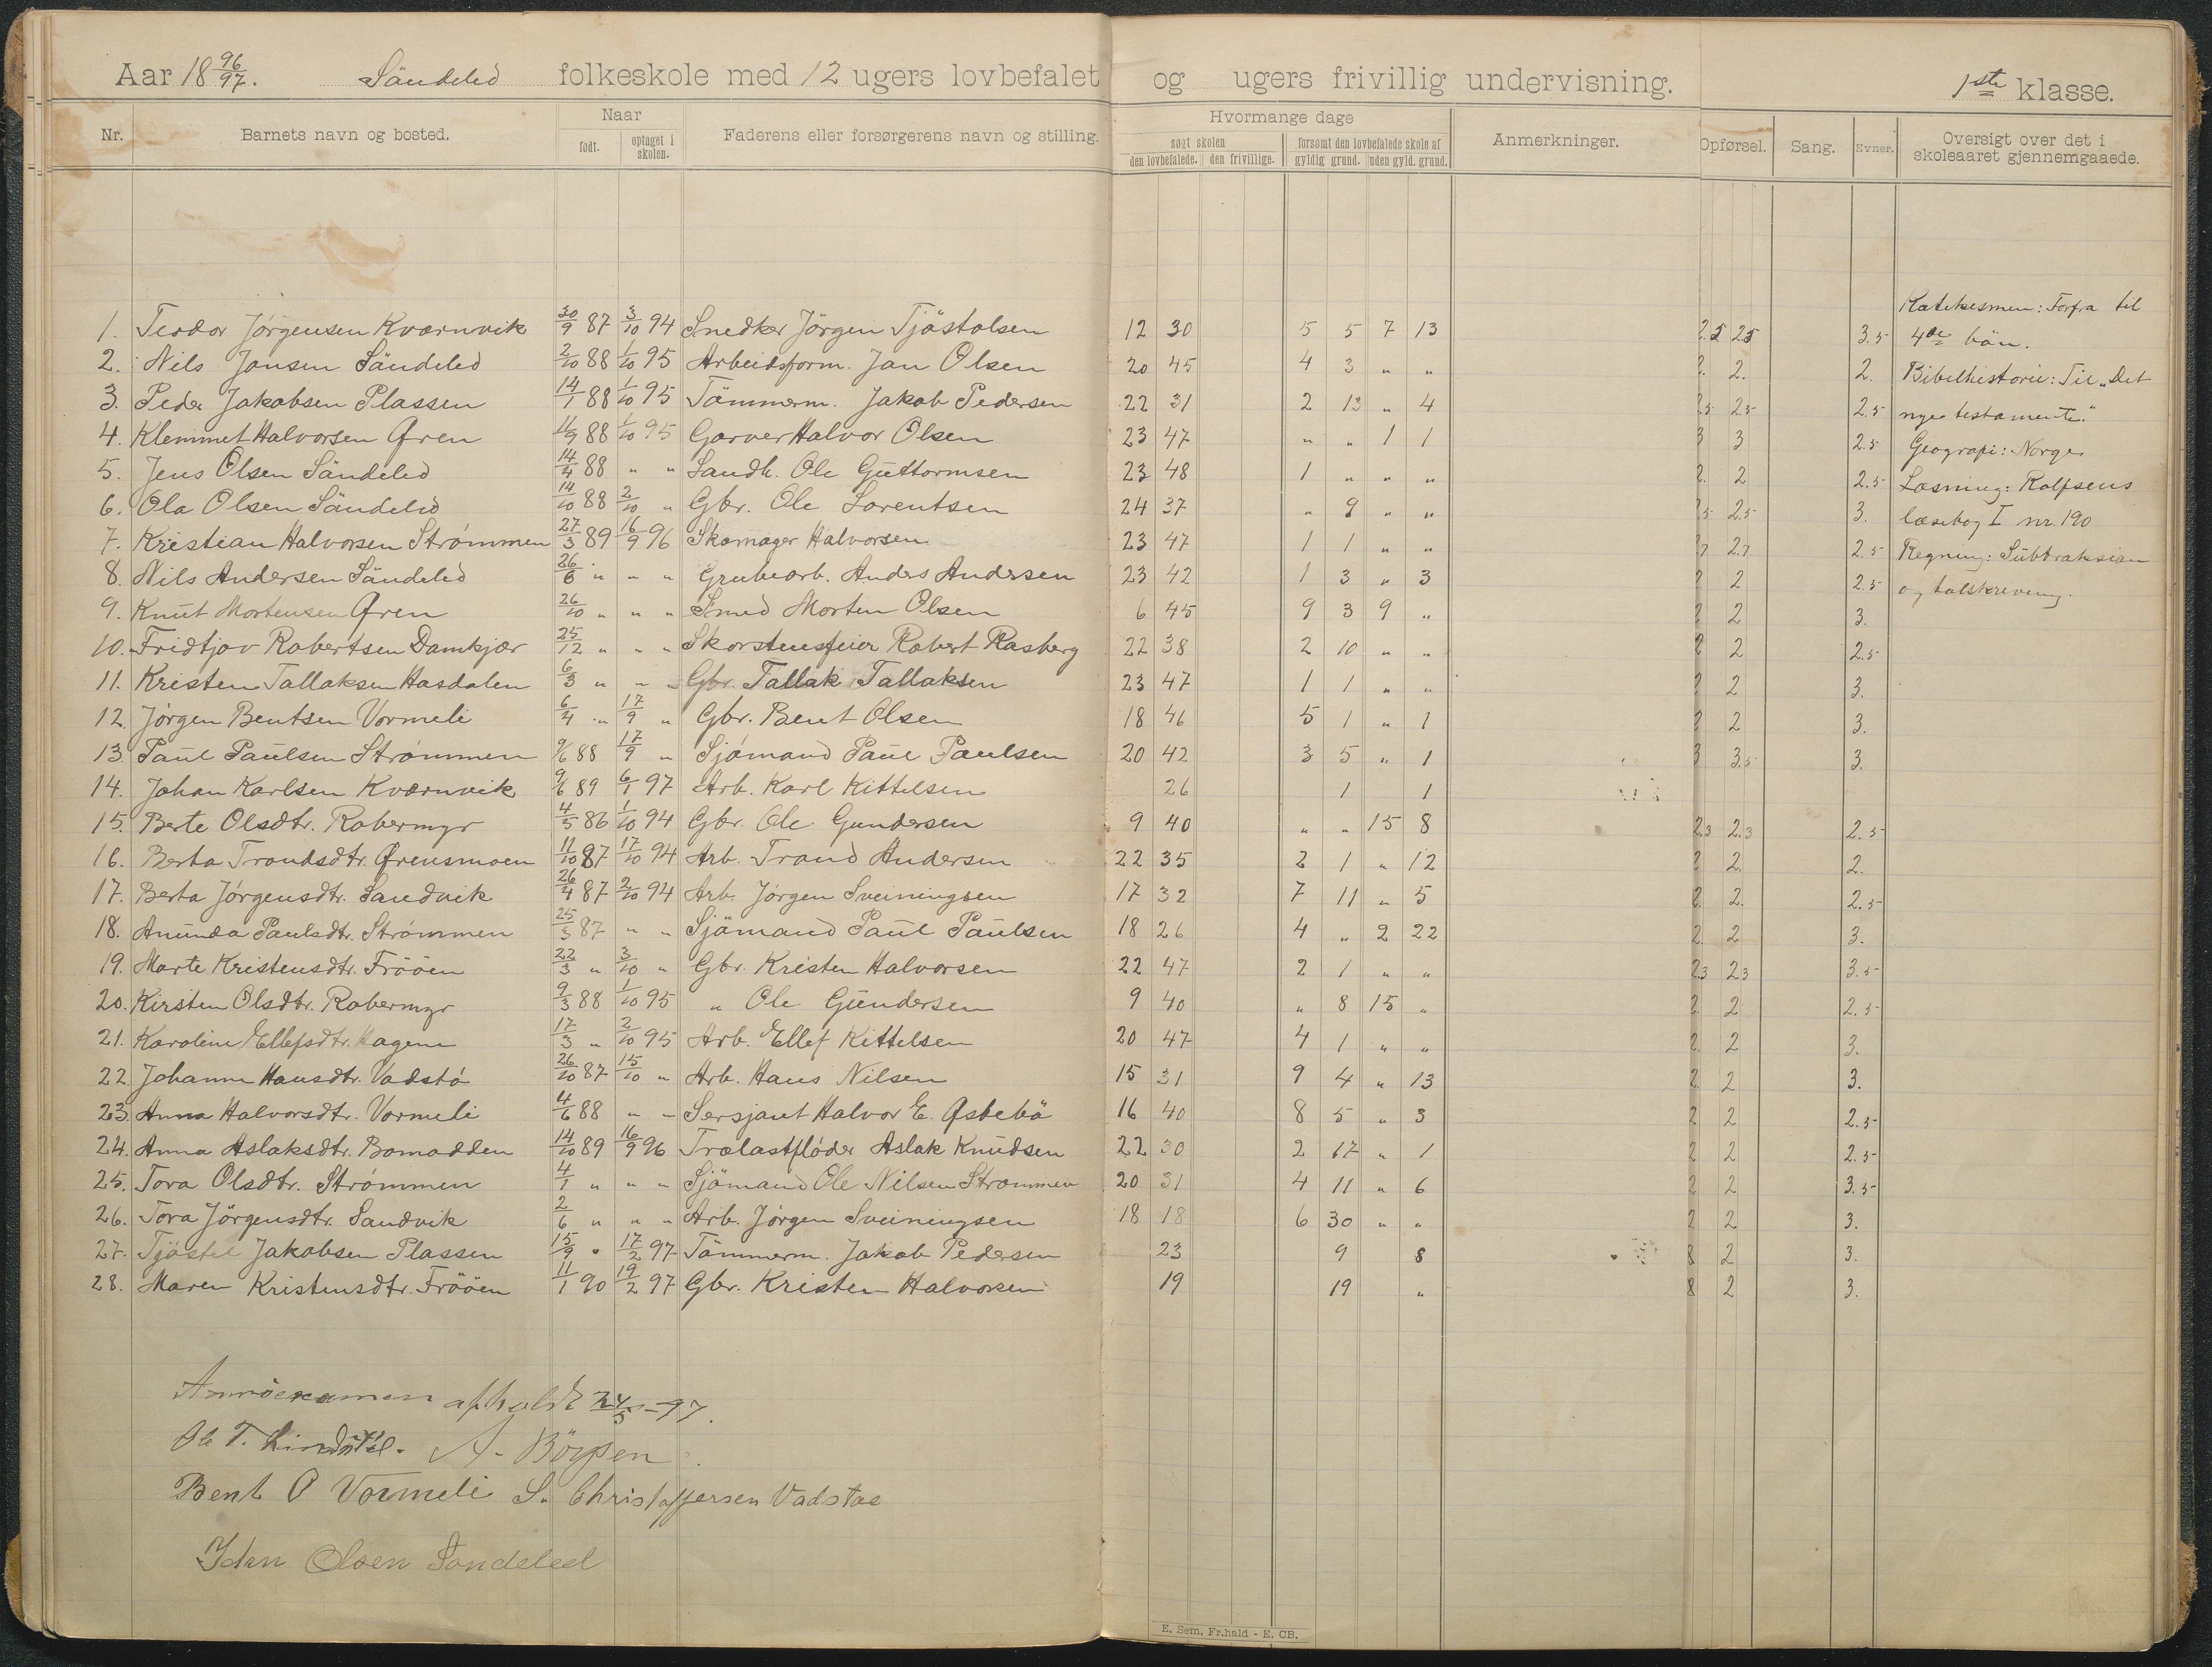 Aar 18 96/97. Sändeled folkeskole med 12 ugers lovbefalet og ugers frivillig undervisning. 1ste klasse.
Nr. Barnets navn og bosted. Naar født. optaget i skolen. Faderens eller forsørgerens navn og stilling. Hvormange dage søgt skolen den lovbefalede. den frivillige. forsømt den lovbefalede skole af gyldig grund. uden gyld. grund. Anmerkninger. Opførsel. Sang. Evner. Oversigt over det i skoleaaret gjennemgaaede.
Katekismen: Forfra til
1. Teodor Jörgensen Kværnvik 30/9 87 3/10 94 Snedker Jörgen Tjöstolsen 12 30 5 5 7 13 2.5 2.5 3.5 4de bön.
2. Nils Jansen Sändeled 2/10 88 1/10 95 Arbeidsform. Jan Olsen 20 45 4 3 " " 2. 2. 2. Bibelhistorie: Til "Det
3. Peder Jakobsen Plassen 14/1 88 1/10 95 Tömmerm. Jakob Pedersen 22 31 2 13 " 4 2.5 2.5 2.5 nye testamente."
4. Klemmet Halvorsen Øren 11/9 88 1/10 95 Garver Halvor Olsen 23 47 " " 1 1 3 3 2.5 Geografi: Norge
5. Jens Olsen Sändeled 14/4 88 " " Landh. Ole Guttormsen 23 48 1 " " " 2. 2 2.5 Læsning: Rolfsens
6. Ola Olsen Sändeled 14/10 88 2/10 " Gbr. Ole Lorentsen 24 37 " 9 " " 2.5 2.5 3. læsebog I nr. 190
7. Kristian Halvorsen Strömmen 27/3 89 16/9 96 Skomager Halvorsen 23 47 1 1 " " 2.7 2.7 2.5 Regning: Subtraksion
8. Nils Andersen Sändeled 26/6 " " " Grubearb. Anders Andersen 23 42 1 3 " 3 2 2 2.5 og talskrivning.
9. Knut Mortensen Øren 26/10 " " " Smed Morten Olsen 6 45 9 3 9 " 2 2 3.
10. Fridtjov Robertsen Damkjær 25/12 " " " Skorstensfeier Robert Rasberg 22 38 2 10 " " 2 2 2.5
11. Kristen Tallaksen Hasdalen 6/3 " " " Gbr. Tallak Tallaksen 23 47 1 1 " " 2 2 3.
12. Jörgen Bentsen Vormeli 6/4 " 17/9 " Gbr. Bent Olsen 18 46 5 1 " 1 2 2 3.
13. Paul Paulsen Strömmen 9/6 88 17/9 " Sjömand Paul Paulsen 20 42 3 5 " 1 3 3.5 3.
14. Johan Karlsen Kværnvik 9/6 89 6/1 97 Arb. Karl Kittelsen 26 1 1
15. Berte Olsdtr. Robermyr 4/5 86 1/10 94 Gbr. Ole Gundersen 9 40 " " 15 8 2.3 2.3 2.5
16. Berta Trondsdtr. Ørensmoen 11/10 87 17/10 94 Arb. Trond Andersen 22 35 2 1 " 12 2 2. 2.
17. Berta Jörgensdtr. Sandvik 26/4 87 2/10 94 Arb. Jörgen Sveiningsen 17 32 7 11 " 5 2 2. 2.5
18. Anunda Paulsdtr. Strömmen 25/3 87 " " Sjömand Paul Paulsen 18 26 4 " 2 22 2. 2 3.
19. Marte Kristensdtr. Fröön 22/3 " 3/10 " Gbr. Kristen Halvorsen 22 47 2 1 " " 2.3 2.3 3.5
20. Kirsten Olsdtr. Robermyr 9/3 88 1/10 95 " Ole Gundersen 9 40 " 8 15 " 2. 2 2.5
21. Karoline Ellefsdtr. Hagene 17/3 " 2/10 95 Arb. Ellef Kittelsen 20 47 4 1 " " 2. 2 3.
22. Johanne Hansdtr. Vadstö 26/10 87 15/10 " Arb. Hans Nilsen 15 31 9 4 " 13 2. 2 3.
23. Anna Halvorsdtr. Vormeli 4/6 88 " " Sersjant Halvor E. Øsbebö 16 40 8 5 " 3 2 2 2.5
24. Anna Aslaksdtr. Bomodden 14/10 89 16/9 96 Trælastflöder Aslak Knudsen 22 30 2 17 " 1 2 2 2.5
25. Tora Olsdtr. Strömmen 4/1 " " " Sjömand Ole Nilsen Strömmen 20 31 4 11 " 6 2 2 3.5
26. Tora Jörgensdtr. Sandvik 2/6 " " " Arb. Jörgen Sveiningsen 18 18 6 30 " " 2 2 3.
27. Tjöstel Jakobsen Plassen 15/9 " 17/2 97 Tömmerm. Jakob Pedersen 23 9 8 8 2 3.
28. Maren Kristensdtr. Fröön 11/1 90 19/2 97 Gbr. Kristen Halvorsen 19 19 " 8 2 3.
afholdt 24/5-97.
Ole T. Lindstöl. A. Börsen
Bent O Vormeli S. Christoffersen Vadstøe
Olsen Söndeled
E. Sem, Fr.hald - E. CB.